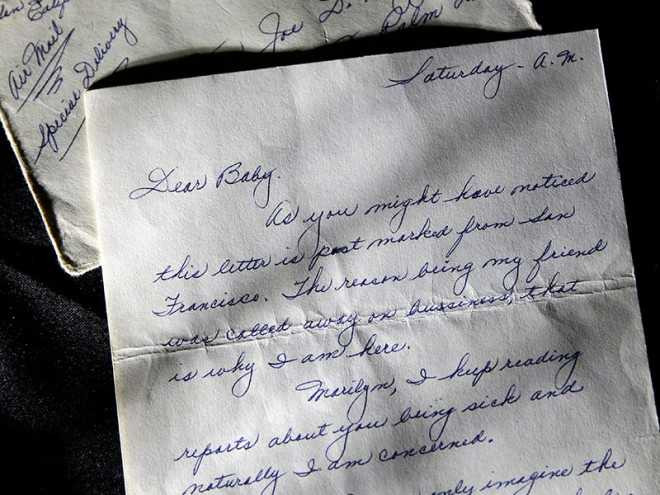 Joe D.
Air Mail
Palm
Special Delivery
Saturday - A.M.
Dear Baby.
As you might have noticed
this letter is post marked from San
Francisco. The reason being my friend
was called away on bussiness, that
is why I am here.
Marilyn, I kep reading
reports about you being sick and
naturally I am concerned.
only imagine the